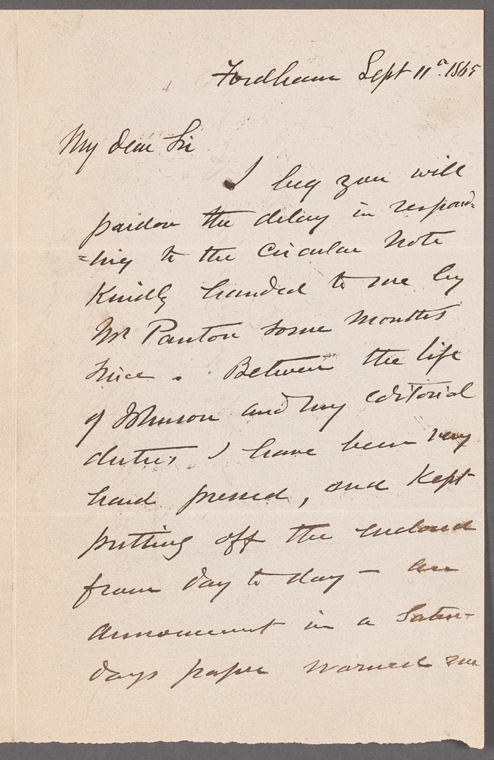 Fordham Sept 11th. 1865
My dear Sir
I beg you will
pardon the delay in respond=
=ing to the Circular Note
Kindly handed to me by
Mr Panton some months
since. Between the life
of Johnson and my editorial
duties I have been very
hard pressed, and kept
putting off the enclosed
from day to day — an
announcement in a Satur-
days paper warned me